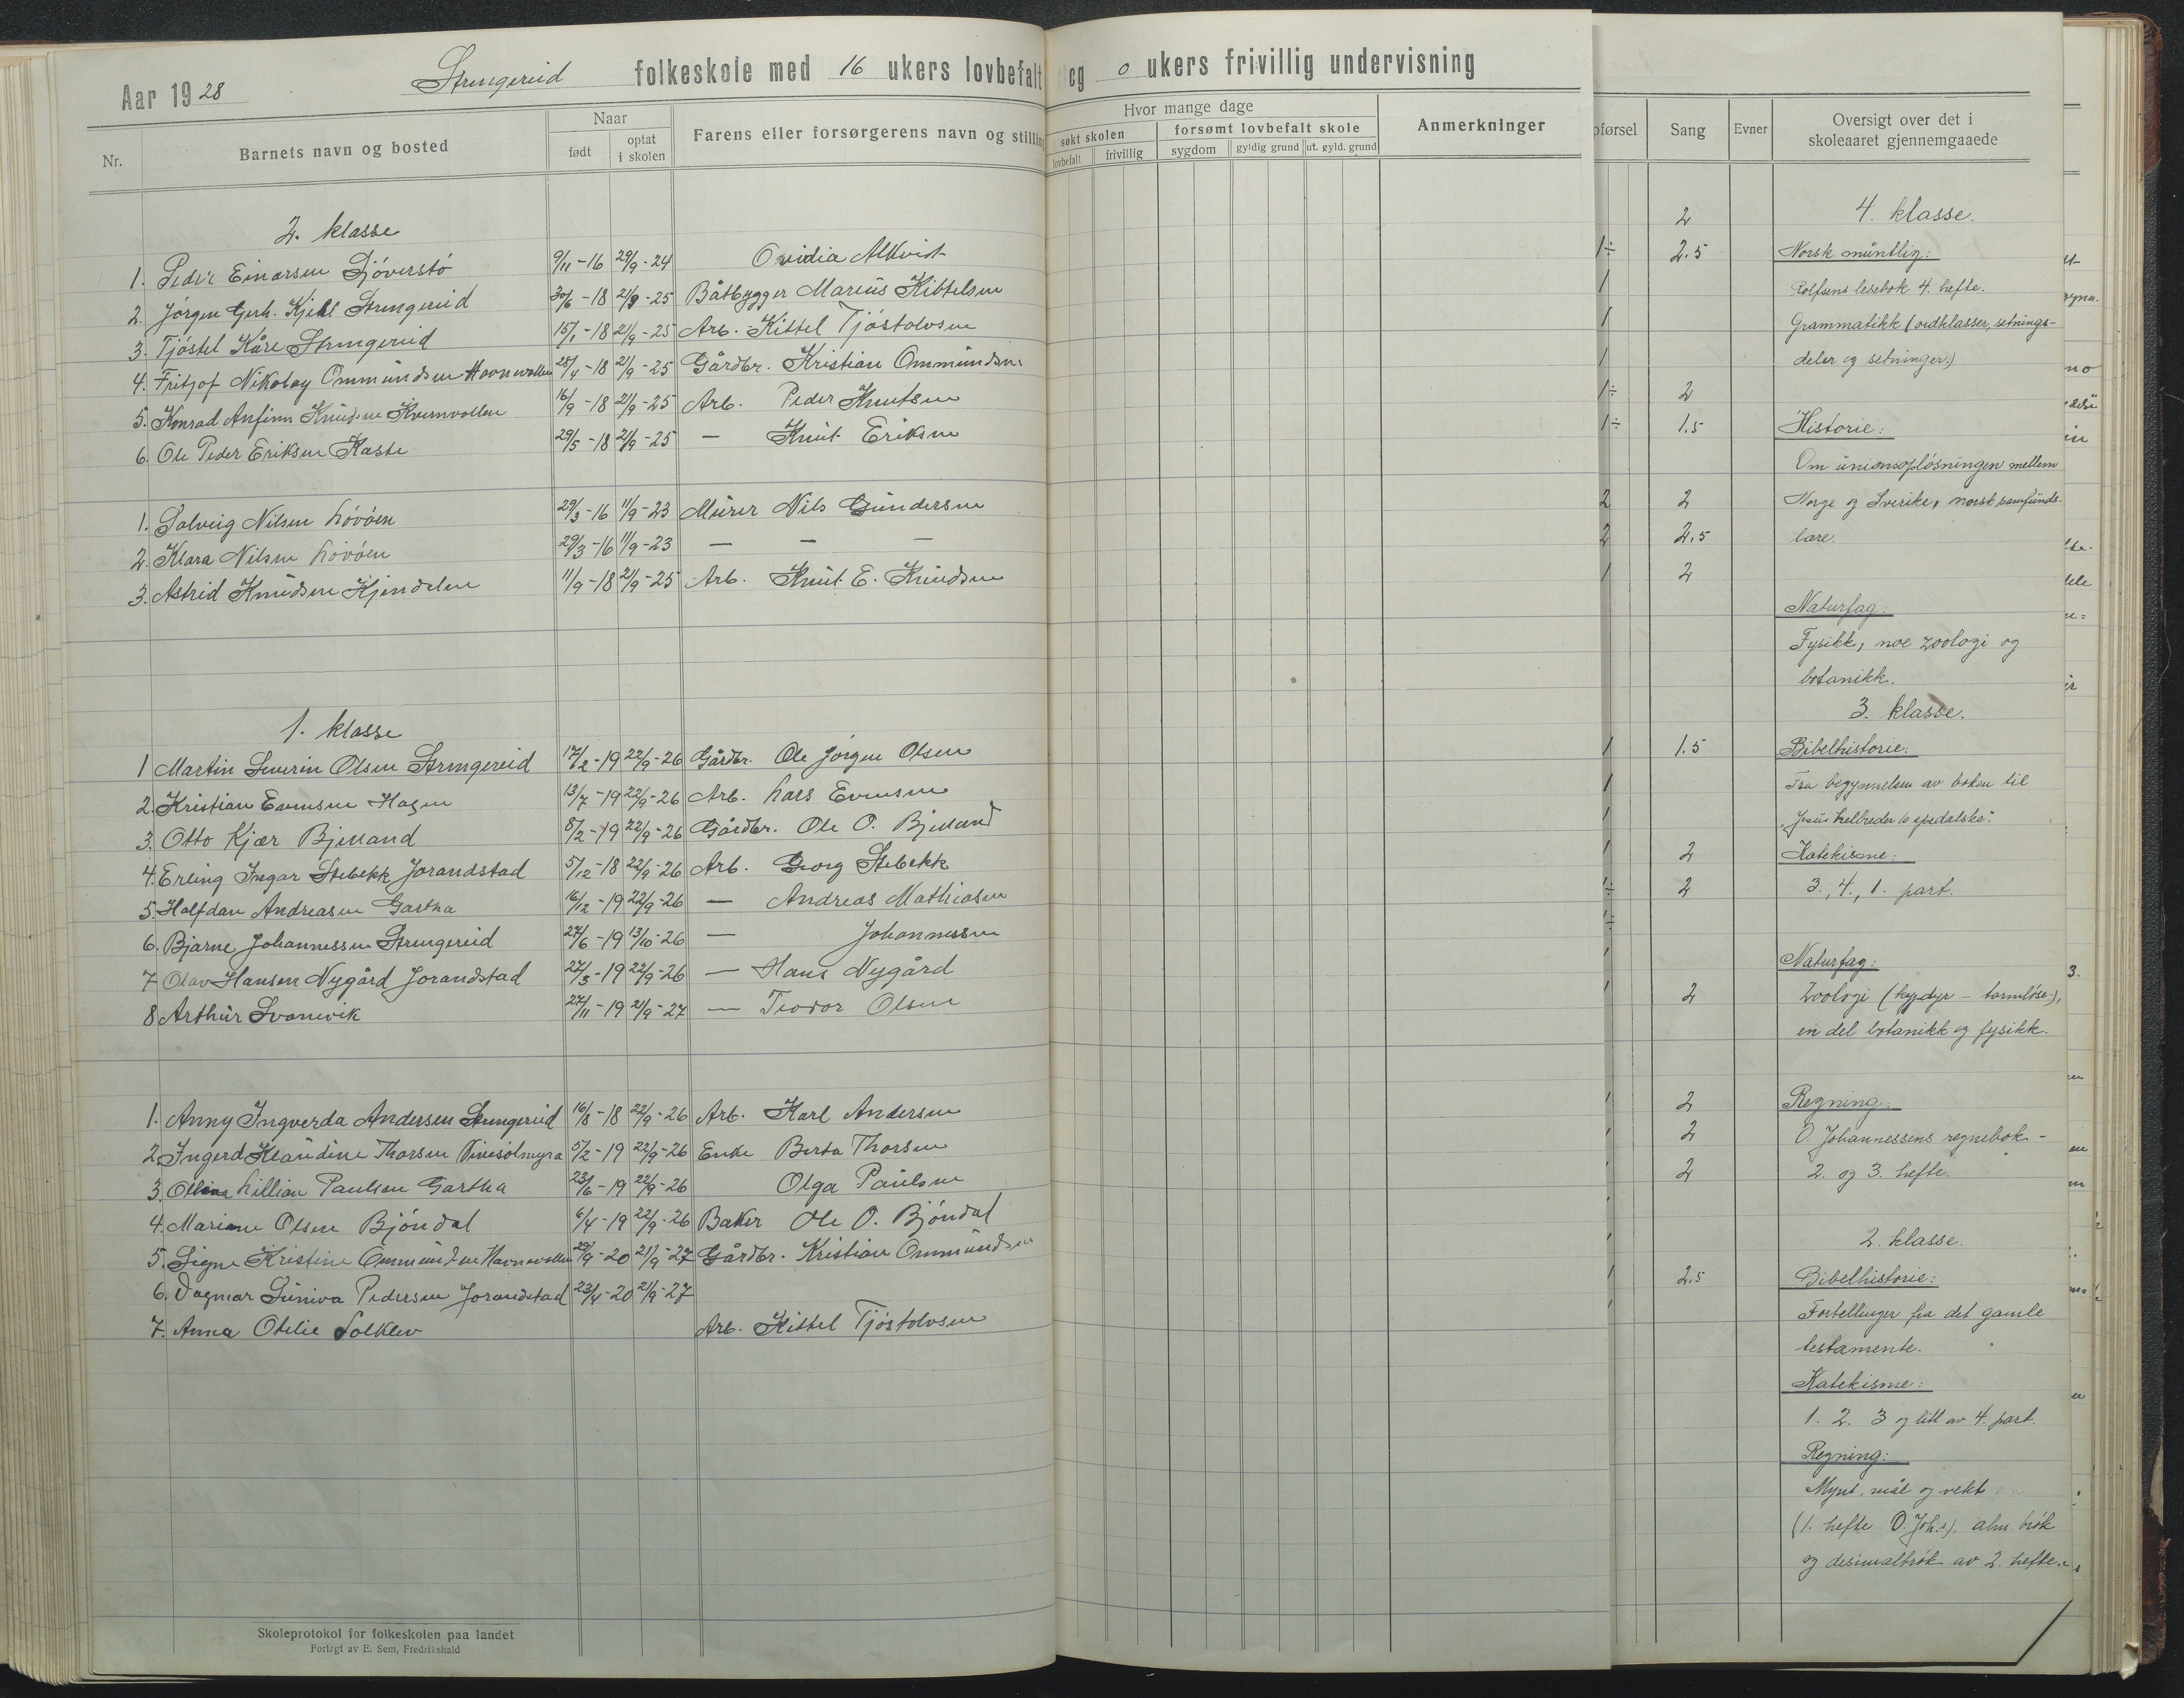 Aar 1928 Strengereid folkeskole med 16 ukers lovbefalt og 0 ukers frivillig undervisning
Nr. Barnets navn og bosted Naar født optat i skolen Farens eller forsørgerens navn og stilling
Hvor mange dage søkt skolen lovbefalt frivillig forsømt lovbefalt skole sygdom gyldig grund ut. gyld. grund Anmerkninger
2. klasse
1. Peder Einarsen Sjöverstö 9/11-16 29/9-24 Ovidia Alkvist
2. Jörgen Gerh. Kjell Strengereid 30/6-18 21/9-25 Båtbygger Marius Kittelsen
3. Tjöstel Kåre Strengereid 15/1-18 21/9-25 Arb. Kittel Tjöstolvsen
4. Fritjof Nikolay Ommundsen Havnvollen 28/4-18 21/9-25 Gårdbr. Kristian Ommundsen
5. Konrad Anfinn Knudsen Kvernvollen 16/9-18 21/9-25 Arb. Peder Knutsen
6. Ole Peder Eriksen Kaste 29/5-18 21/9-25 — Knut Eriksen
1. Solveig Nilsen Lövöen 29/3-16 11/9-23 Murer Nils Gundersen
2. Klara Nilsen Lövöen 29/3-16 11/9-23 — — —
3. Astrid Knudsen Kjendalen 11/9-18 21/9-25 Arb. Knut E. Knudsen
1. klasse
1 Martin Severin Olsen Strengereid 17/2-19 22/9-26 Gårdbr. Ole Jörgen Olsen
2. Kristian Evensen Hagen 13/7-19 22/9-26 Arb. Lars Evensen
3. Otto Kjær Bjelland 8/2-19 22/9-26 Gårdbr. Ole O. Bjelland
4. Erling Ingar Stebekk Jorandstad 5/12-18 22/9-26 Arb. Georg Stebekk
5. Halfdan Andreasen Gartha 16/12-19 22/9-26 — Andreas Mathiasen
6. Bjarne Johannessen Strengereid 27/6-19 13/10-26 — Johannessen
7 Olav Hansen Nygård Jorandstad 27/3-19 22/9-26 — Hans Nygård
8 Arthur Svanevik 27/11-19 21/9-27 — Teodor Olsen
1. Anny Ingverda Andersen Strengereid 16/8-18 22/9-26 Arb. Karl Andersen
2. Ingerd Klaudine Thorsen 5/2-19 22/9-26 Enke Berta Thorsen
3. Lillian Paulsen Gartha 23/6-19 22/9-26 Olga Paulsen
4. Mariane Olsen Bjöndal 6/4-19 22/9-26 Baker Ole O. Bjöndal
5. Signe Kristine Ommundsen Havnevollen 29/9-20 21/9-27 Gårdbr. Kristian Ommundsen
6. Dagmar Suniva Pedersen Jorandstad 23/4-20 21/9-27
7. Anna Otelie Solklev Arb. Kittel Tjöstolvsen
Skoleprotokol for folkeskolen paa landet
Forlagt av E. Sem, Fredrikshald
pførsel Sang Evner Oversigt over det i skoleaaret gjennemgaaede
2 4. klasse.
1÷ 2.5 Norsk muntlig:
1 Rolfsens lesebok 4. hefte.
1 Grammatikk (ordklasser, setnings-
1 deler og setninger.)
1÷ 2
1÷ 1.5 Historie:
Om unionsoplösningen mellem
2 2 Norge og Sverike, norsk samfunds-
2 2.5 lære.
1 2
Naturfag:
Fysikk, noe zoologi og
botanikk.
3. klasse.
1 1.5 Bibelhistorie:
1 Fra begynnelsen av boken til
1 „Jesus helbreder 10 spedalske".
1 2 Katekisme:
1÷ 2 3., 4., 1. part.
1÷
1 Naturfag:
1 2 Zoologi (krypdyr - tarmlöse),
en del botanikk og fysikk.
1 2 Regning:
1 2 O. Johannessens regnebok -
1 2 2. og 3. hefte.
1
1 2. klasse.
1 2.5 Bibelhistorie:
1 Fortellinger fra det gamle
testamente.
Katekisme:
1. 2. 3 og litt av 4. part.
Regning:
Mynt, mål og vekt
(1. hefte O. Joh.s), alm. brök
og desimalbrök av 2. hefte.